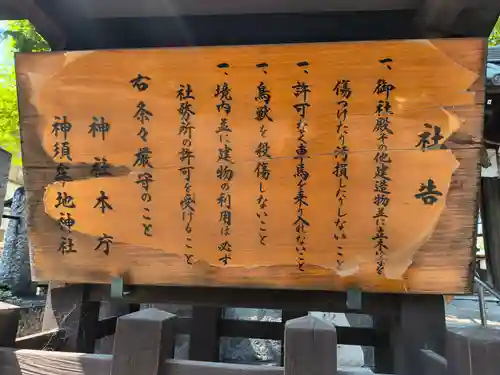 社告
一、御社殿その他建造物並に立木に
傷つけたり汚損したりしないこと
一、許可なく車馬を乗り入れないこと
一、鳥獣を殺傷しないこと
一、境内並に建物の利用は必ず
社務所の許可を受けること
右条々厳守のこと
神社本庁
神須牟地神社